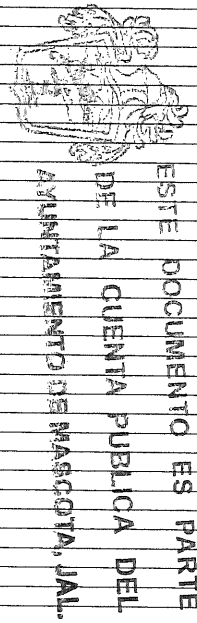 ESTE DOCUMENTO ES PARTE
DE LA CUENTA PUBLICA DEL
AYUNTAMIENTO DE MASCOTA, JAL.